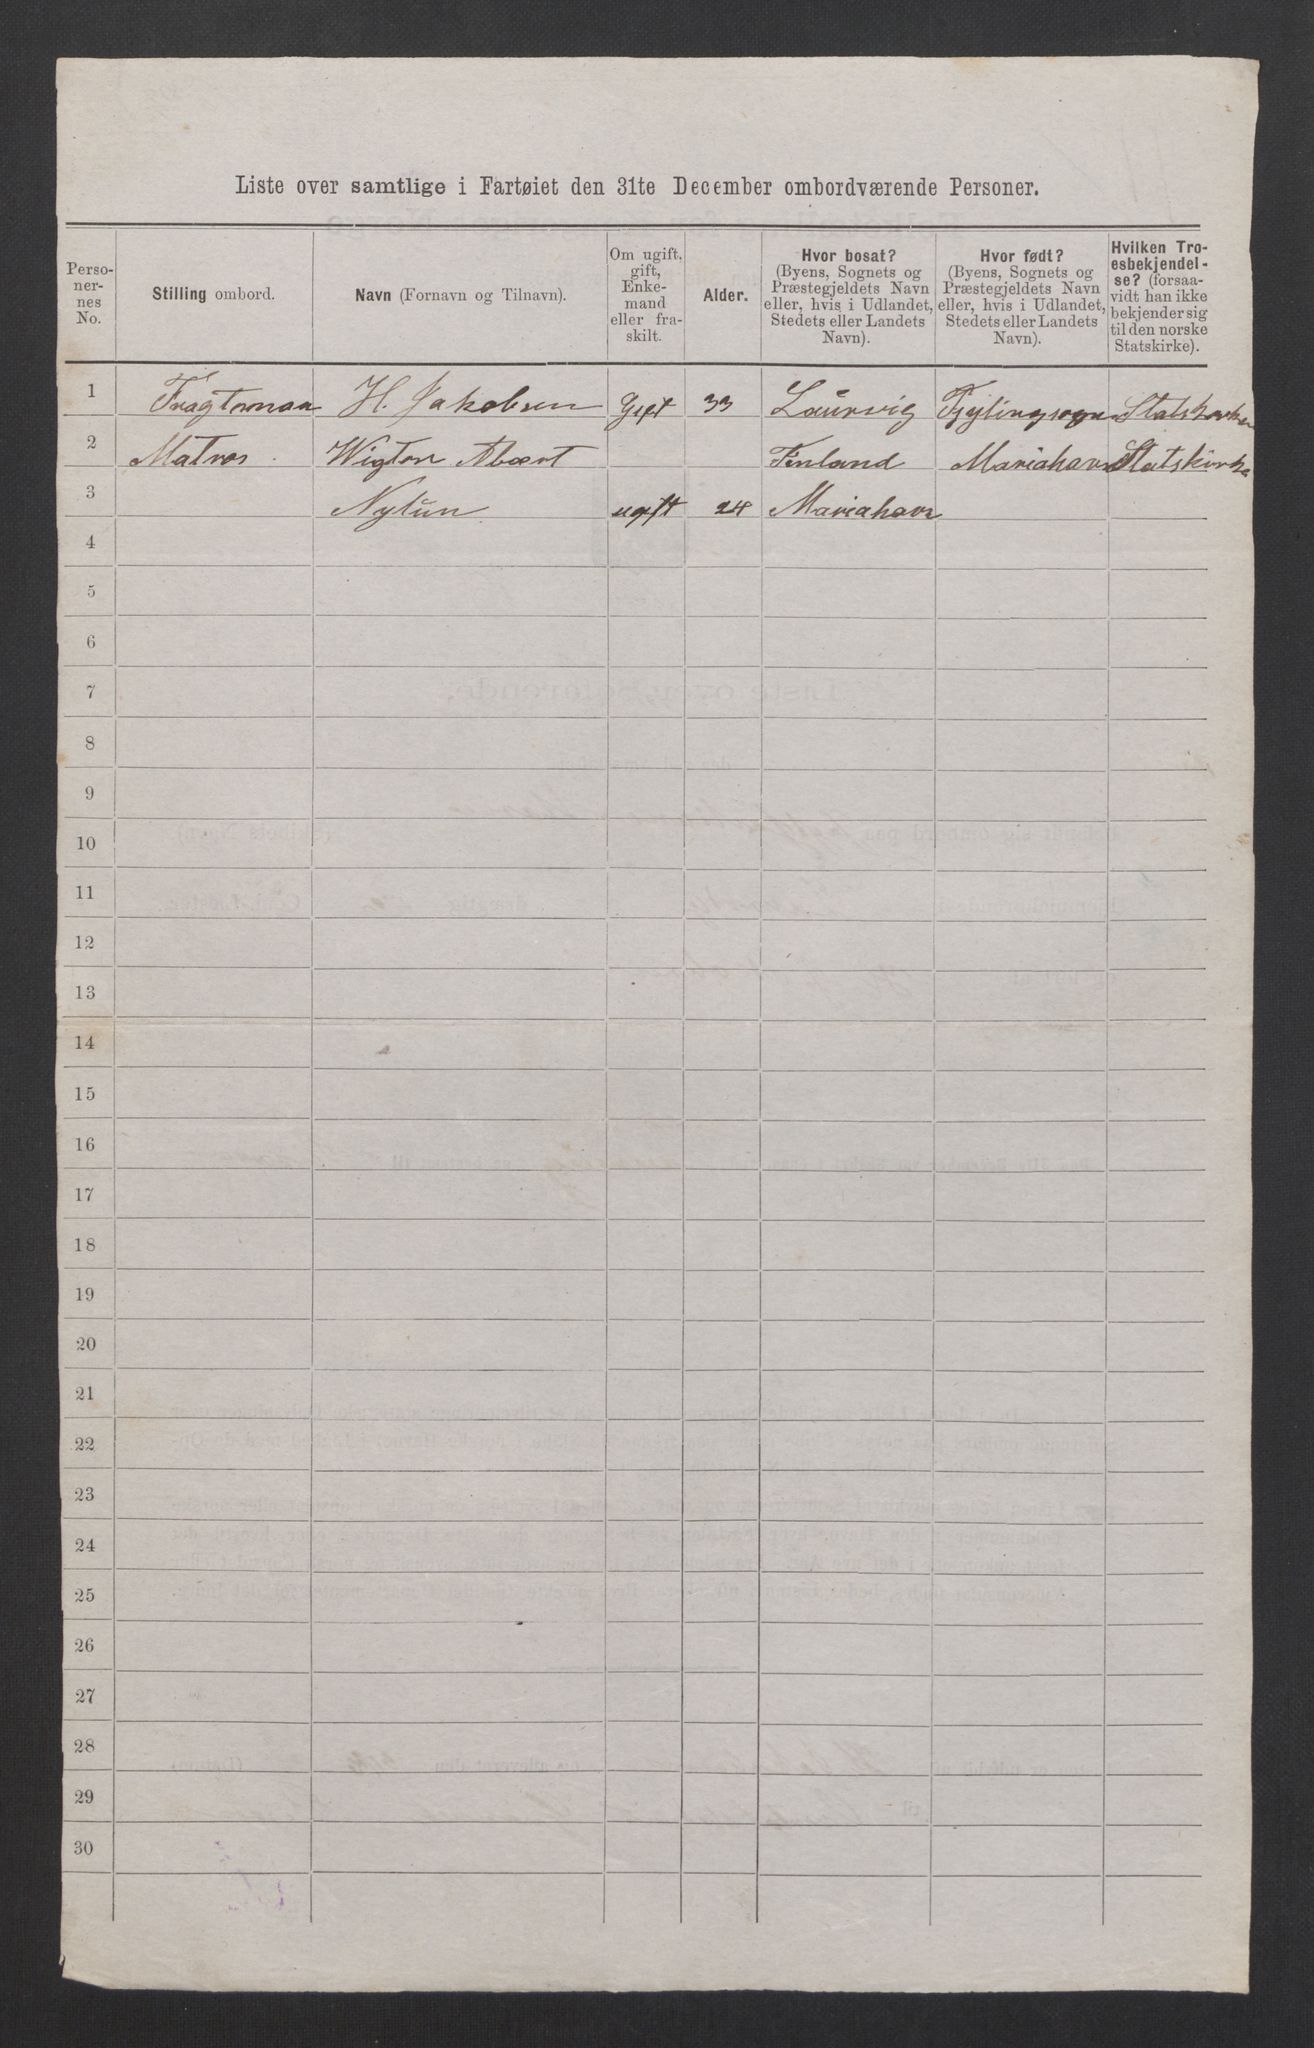 Liste over samtlige i Fartøiet den 31te December ombordværende Personer.
Perso-
ner-
nes
No.
Stilling ombord.
Navn (Fornavn og Tilnavn).
Om ugift,
gift,
Enke-
mand
eller fra-
skilt.
Alder.
Hvor bosat?
(Byens, Sognets og
Præstegjeldets Navn
eller, hvis i Udlandet,
Stedets eller Landets
Navn).
Hvor født?
(Byens, Sognets og
Præstegjeldets Navn
eller, hvis i Udlandet,
Stedets eller Landets
Navn).
Hvilken Tro-
esbekjendel-
se? (forsaa-
vidt han ikke
bekjender sig
til den norske
Statskirke).
1 H. Jakobsen Gift 33 Laurvig
2 Matros Wigtor Finland Mariahavn Statskirke
3 Nylun ugift 24 Mariahavn
4
5
6
7
8
9
10
11
12
13
14
15
16
17
18
19
20
21
22
23
24
25
26
27
28
29
30